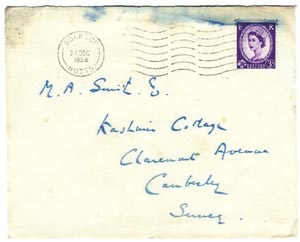 2 DEC
1958
NOTTS.
3D
M.A. Smith E.
Kashmir Cottage
Claremont Avenue
Camberley
Surrey